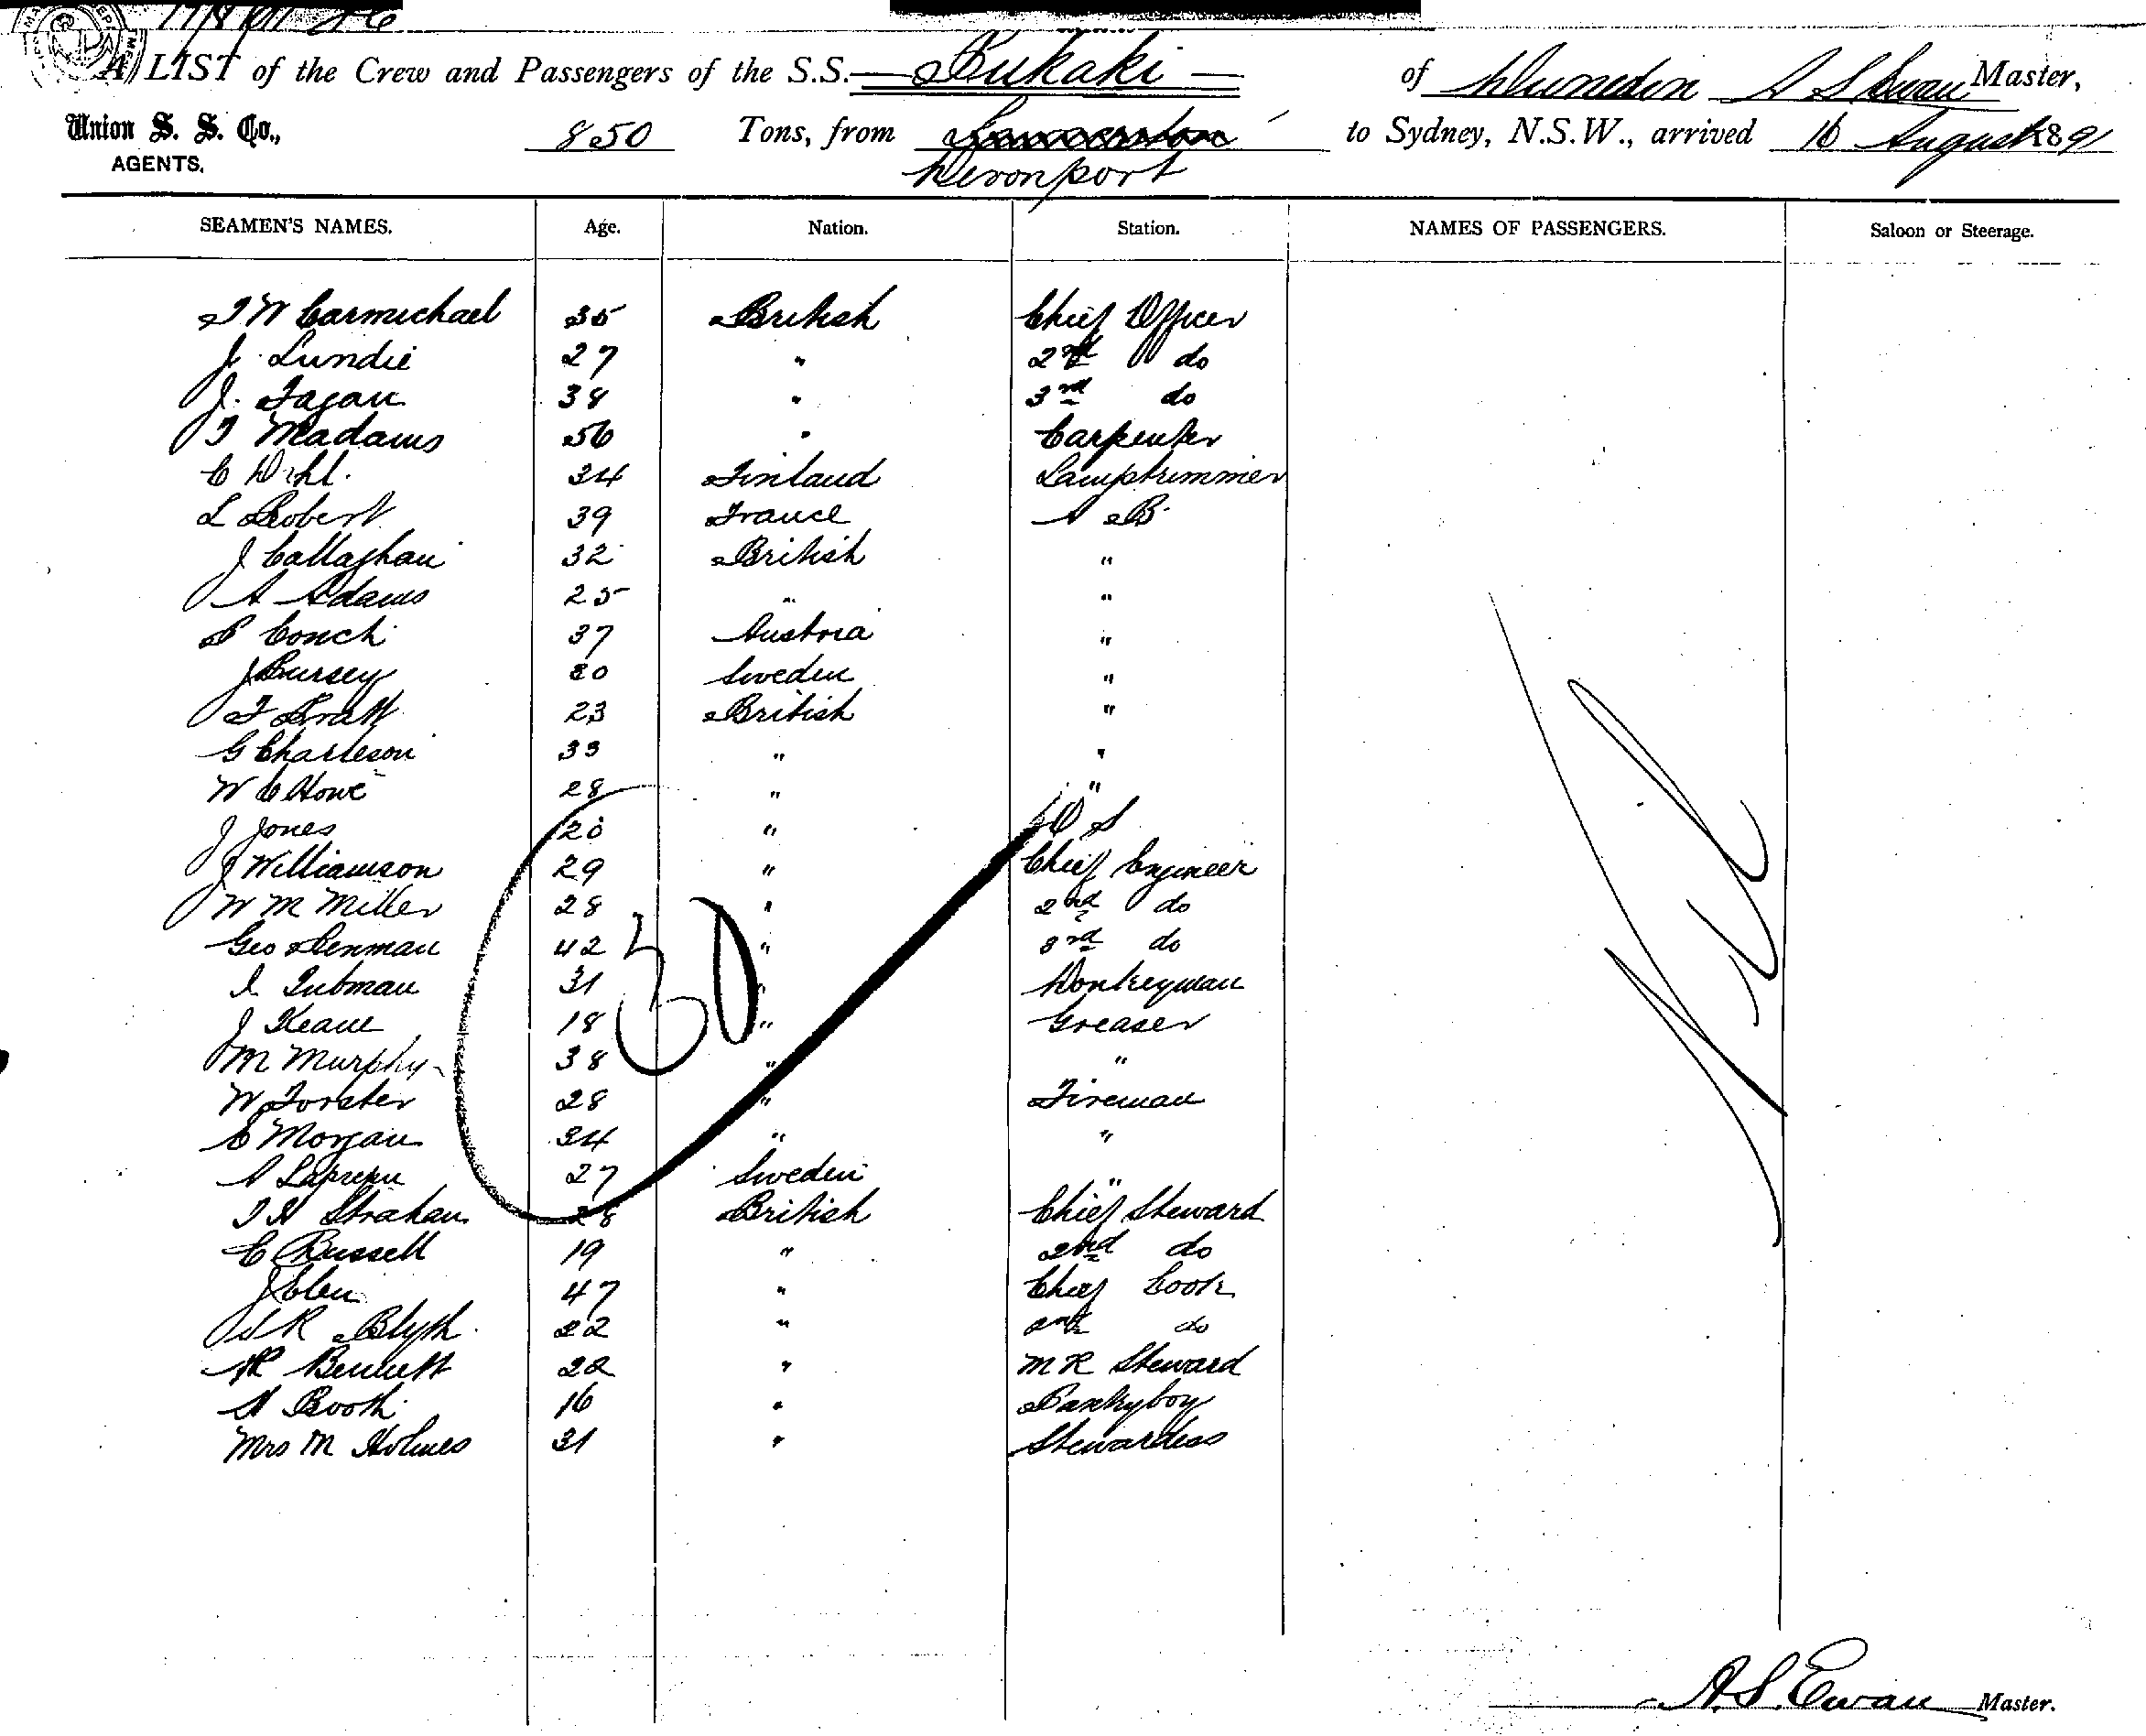 A LIST of the Crew and Passengers of the S.S. Pukaki of Dunedin A S Ewan Master,
Union S. S. Co., AGENTS. 850 Tons, from Launceston Devonport to Sydney, N.S.W., arrived 16 August 1891
SEAMEN'S NAMES. Age. Nation. Station. NAMES OF PASSENGERS. Saloon or Steerage.
T W Carmichael 35 British Chief Officer
J. Lundie 27 " 2nd do
J. Fagan 38 " 3rd do
T Madams 56 " Carpenter
C 34 Finland Lamptrimmer
L Robert 39 France A B
J Callaghan 32 British "
A Adams 25 " "
P Conch 37 Austria "
J Pursey 20 Sweden "
F Pratt 23 British "
G Charleson 33 " "
W C Howe 28 " "
J Jones 20 " O S
J Williamson 29 " Chief Engineer
W M Miller 28 " 2nd do
Geo Denman 42 " 3rd do
I. Tubman 31 " Donkeyman
J Keane 18 " Greaser
M Murphy 38 " "
W Forster 28 " Fireman
E Morgan 34 " "
A 27 Sweden "
T H Strahan 28 British Chief Steward
C Russell 19 " 2nd do
J Clen 47 " Chief Cook
W R Blyth 22 " 2nd do
R Bennett 22 " M R Steward
H Booth 16 " Pantryboy
Mrs M Holmes 31 " Stewardess
30
Nil
A. S. Ewan Master.